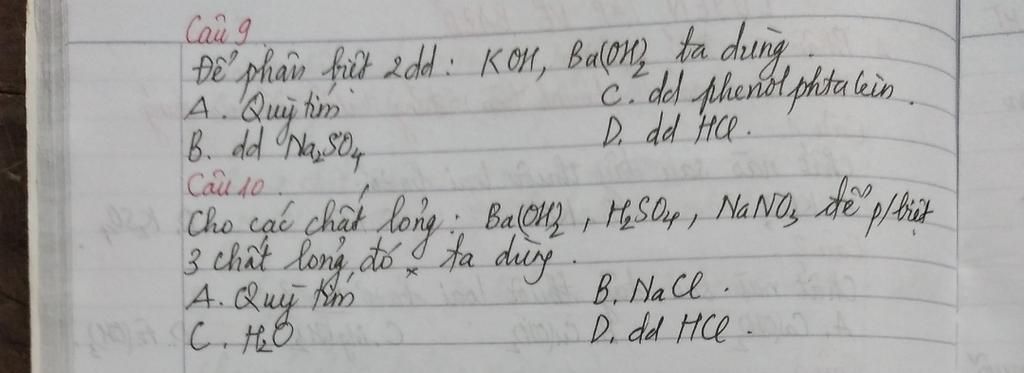 Câu 9
Để phân biệt 2dd : KOH, Ba(OH)2 ta dùng .
A. Quỳ tím
C. dd phenolphtalein.
B. dd Na2SO4
D. dd HCl.
Câu 10.
Cho các chất lỏng : Ba(OH)2, H2SO4, NaNO3 để p/biệt
3 chất lỏng đó ta dùng .
A. Quỳ tím
B. NaCl .
C. H2O
D. dd HCl .